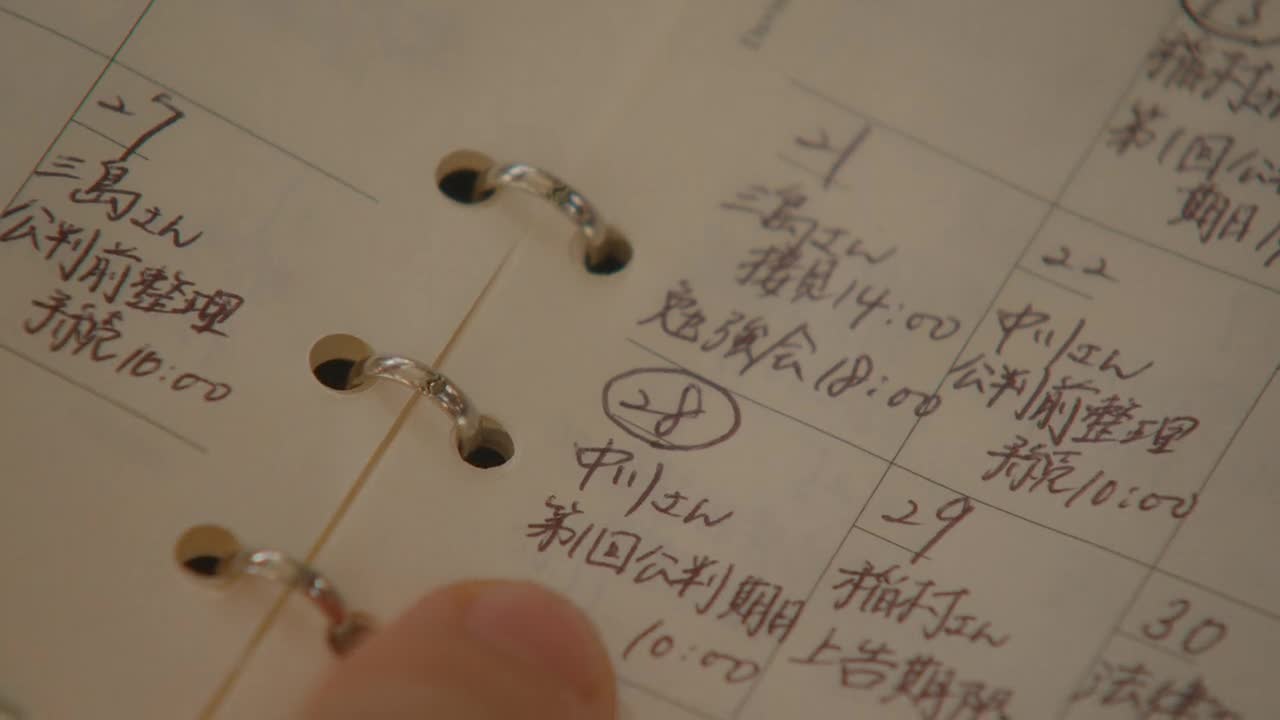 27
三島さん
公判前整理
手続10:00
21
三島さん
接見14:00
勉強会18:00
28
中川さん
第1回公判期日
10:00
稲村さん
第1回公判
期日
22
中川さん
公判前整理
手続10:00
29
稲村さん
上告期限
30
法律